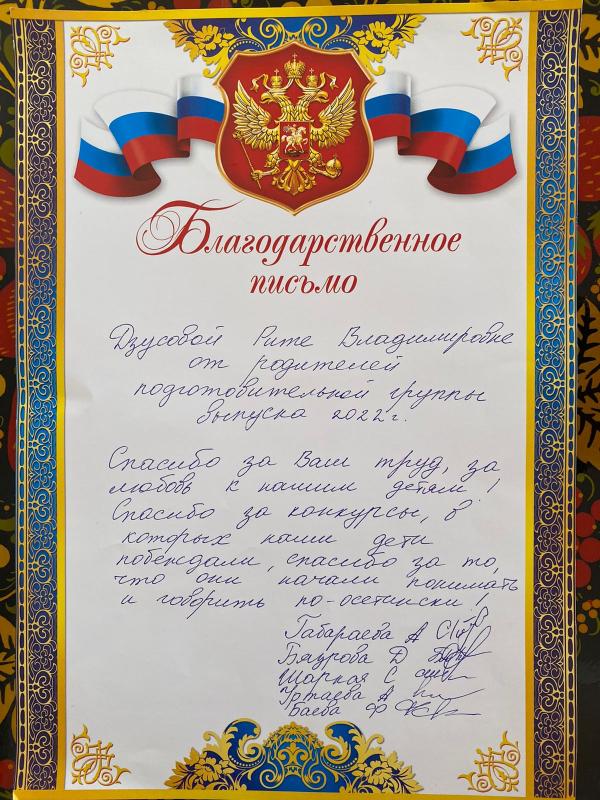 Благодарственное
письмо
Дзусовой Рите Владимировне
от родителей
подготовительной группы
выпуска 2022 г.
Спасибо за Ваш труд, за
любовь к нашим детям!
Спасибо за конкурсы, в
которых наши дети
побеждали, спасибо за то,
что они начали понимать
и говорить по-осетински!
Габараева А
Бязрова Д
Шаркая С
Уртаева А
Баева Ф